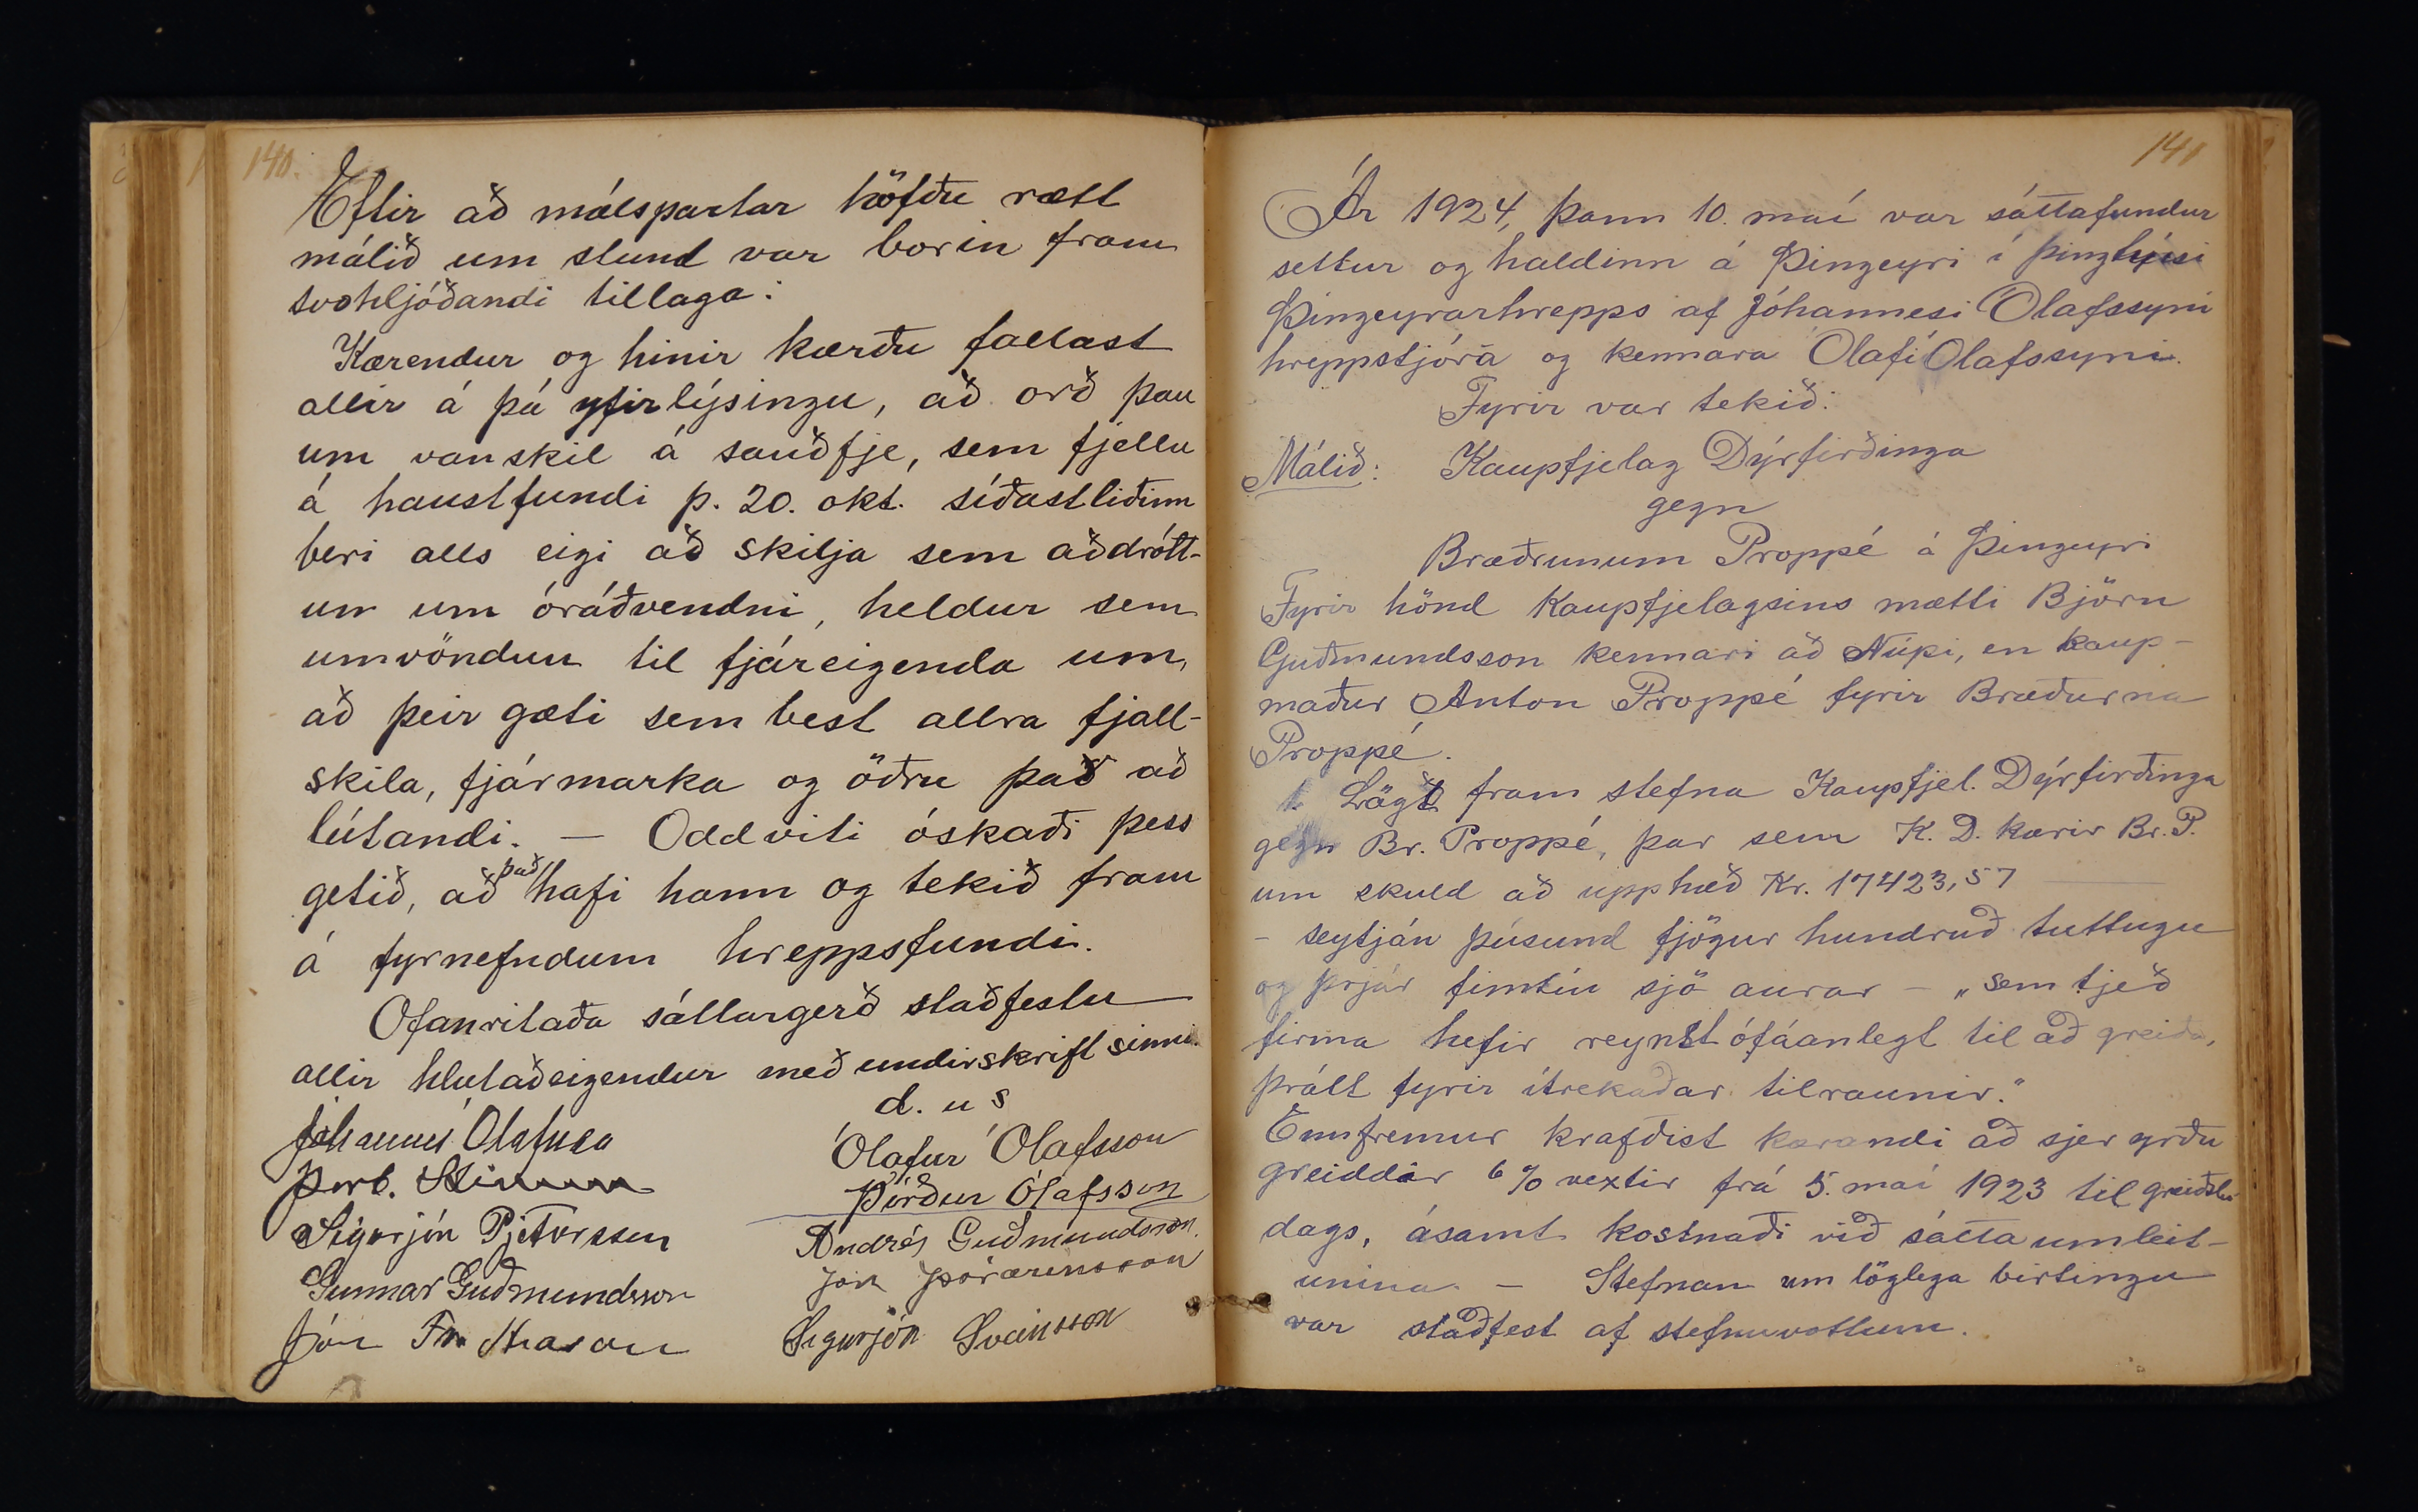 140.
Eftir að málspartar höfðu rætt
málið um stund var borin fram
svohljóðandi tillaga:
Kærendur og hinir kærðu fallast
allir á þá yfirlýsingu, að orð þau
um vanskil á sauðfje, sem fjellu
á haustfundi þ. 20. okt. síðastliðinn
beri alls eigi að skilja sem aðdrótt-
un um óráðvendni, heldur sem
umvöndun til fjáreigenda um,
að þeir gæti sem best allra fjall-
skila, fjármarka og öðru það að
lútandi. — Oddviti óskaði þess
getið, að það hafi hann og tekið fram
á fyrnefndum hreppsfundi.
Ofanritaða sáttargerð staðfestu
allir hlutaðeigendur með undirskrift sinni.
d. u s
Jóhannes Ólafsson
Ólafur Ólafsson
Þorb.
Þórður Ólafsson
Sigurjón Pjetursson
Andrés Guðmundsson.
Gunnar Guðmundsson
Jón Þórarinsson
Jón Fr. Arason
Sigurjón Sveinsson
141
Ár 1924, þann 10. maí var sáttafundur
settur og haldinn á Þingeyri í þinghúsi
Þingeyrarhrepps af Jóhannesi Ólafssyni
hreppstjóra og kennara Ólafi Ólafssyni.
Fyrir var tekið:
Málið: Kaupfjelag Dýrfirðinga
gegn
Bræðrunum Proppé á Þingeyri
Fyrir hönd Kaupfjelagsins mætti Björn
Guðmundsson kennari að Núpi, en kaup-
maður Anton Proppé fyrir Bræðurna
Proppé.
1. Lögð fram stefna Kaupfjel. Dýrfirðinga
gegn Br. Proppé, þar sem K. D. kærir Br. P.
um skuld að upphæð Kr. 17423,57
- seytján þúsund fjögur hundruð tuttugu
og þrjár fimtíu sjö aurar — „sem tjeð
firma hefir reynst ófáanlegt til að greiða,
þrátt fyrir ítrekaðar tilraunir."
Ennfremur krafðist kærandi að sjer yrðu
greiddir 6% vextir frá 5. maí 1923 til greiðslu
dags, ásamt kostnaði við sáttaumleit-
unina. — Stefnan um löglega birtingu
var staðfest af stefnuvottum.